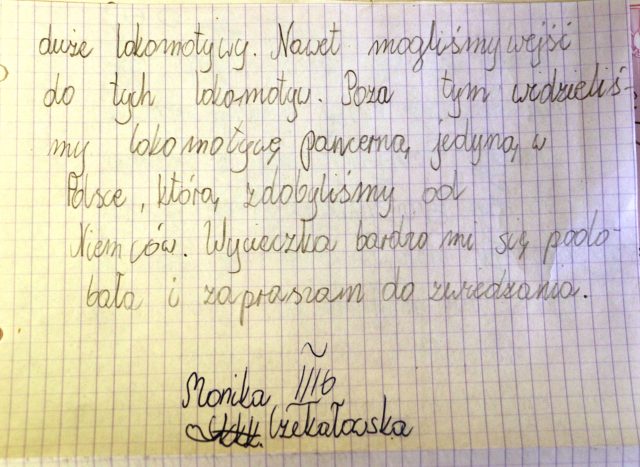 duże lokomotywy. Nawet mogliśmy wejść
do tych lokomotyw. Poza tym widzieliś-
my lokomotywę pancerną, jedyną w
Polsce, którą zdobyliśmy od
Niemców. Wycieczka bardzo mi się podo-
bała i zapraszam do zwiedzania.
Monika III b
Czekałowska